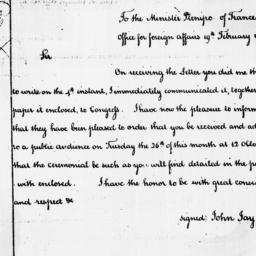 To the Minister Plenipo. of France
Office for foreign affairs 19th February
Sir
On receiving the Letter you did me th
to write on the 4th instant, I immediately communicated it, togethe
paper it enclosed, to Congress. I have now the pleasure to inform
that they have been pleased to order that you be received and ad
to a public audience on Tuesday the 26th of this month at 12 OClo
that the ceremonial be such as you will find detailed in the p
with enclosed. I have the honor to be with great consi
and respect &c
signed: John Jay